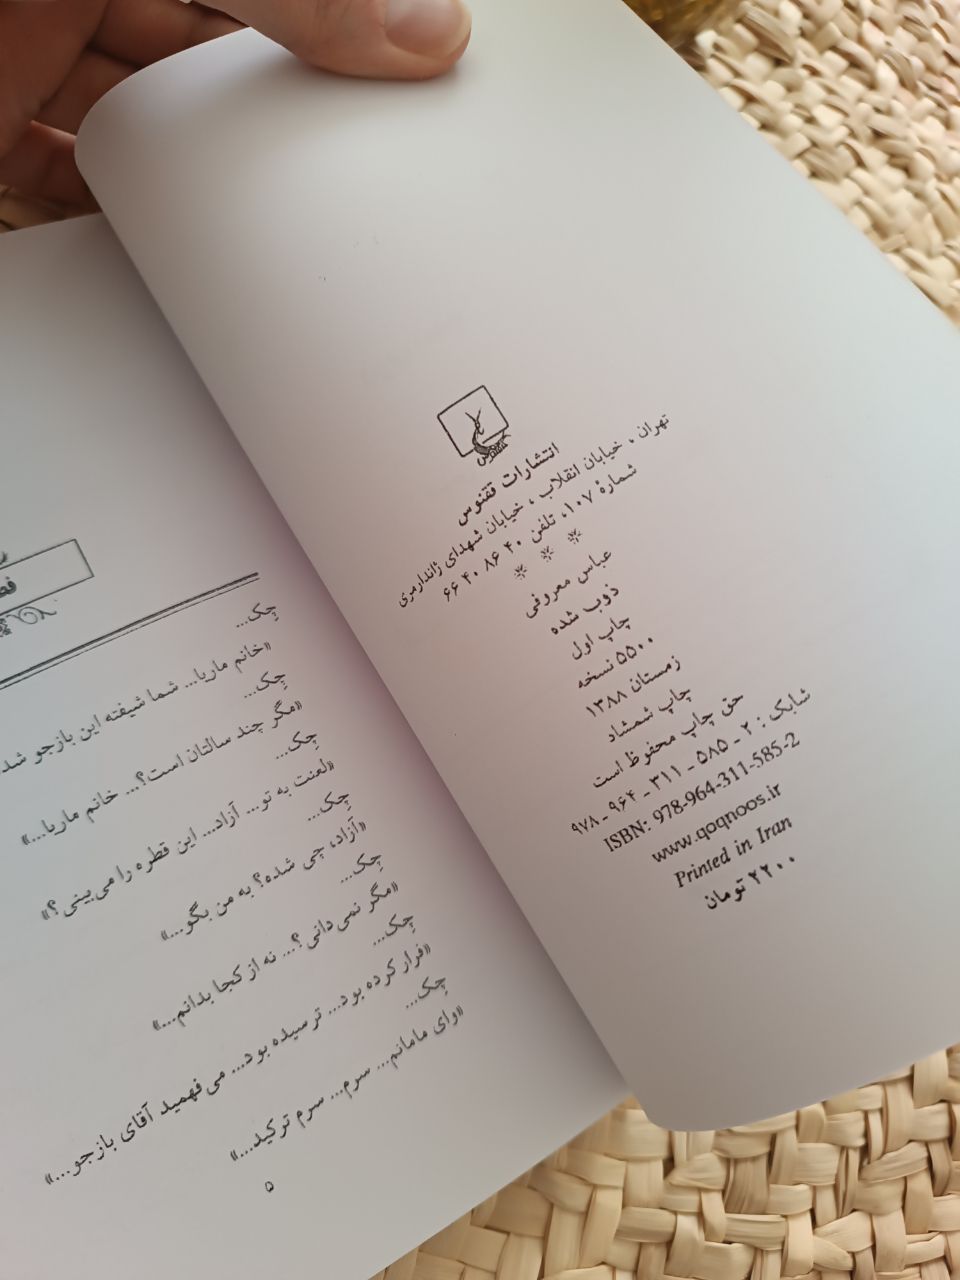 ققنوس
انتشارات ققنوس
تهران، خیابان انقلاب، خیابان شهدای ژاندارمری
شمارهٔ ۱۰۷، تلفن ۴۰ ۸۶ ۴۰ ۶۶
* * *
عباس معروفی
ذوب شده
چاپ اول
۵۵۰۰ نسخه
زمستان ۱۳۸۸
چاپ شمشاد
حق چاپ محفوظ است
شابک: ۲ ـ ۵۸۵ ـ ۳۱۱ ـ ۹۶۴ ـ ۹۷۸
ISBN: 978-964-311-585-2
www.qoqnoos.ir
Printed in Iran
۲۲۰۰ تومان
چِک...
«خانم ماریا... شما شیفته این بازجو
چِک...
«مگر چند سالتان است؟... خانم ماریا...»
چِک...
«لعنت به تو... آزاد... این قطره را می‌بینی؟»
چِک...
«آزاد، چی شده؟ به من بگو...»
چِک...
«مگر نمی‌دانی؟... نه از کجا بدانم...»
چِک...
«فرار کرده بود... ترسیده بود... می‌فهمید آقای بازجو...»
چِک...
«وای مامانم... سرم... سرم ترکید...»
۵